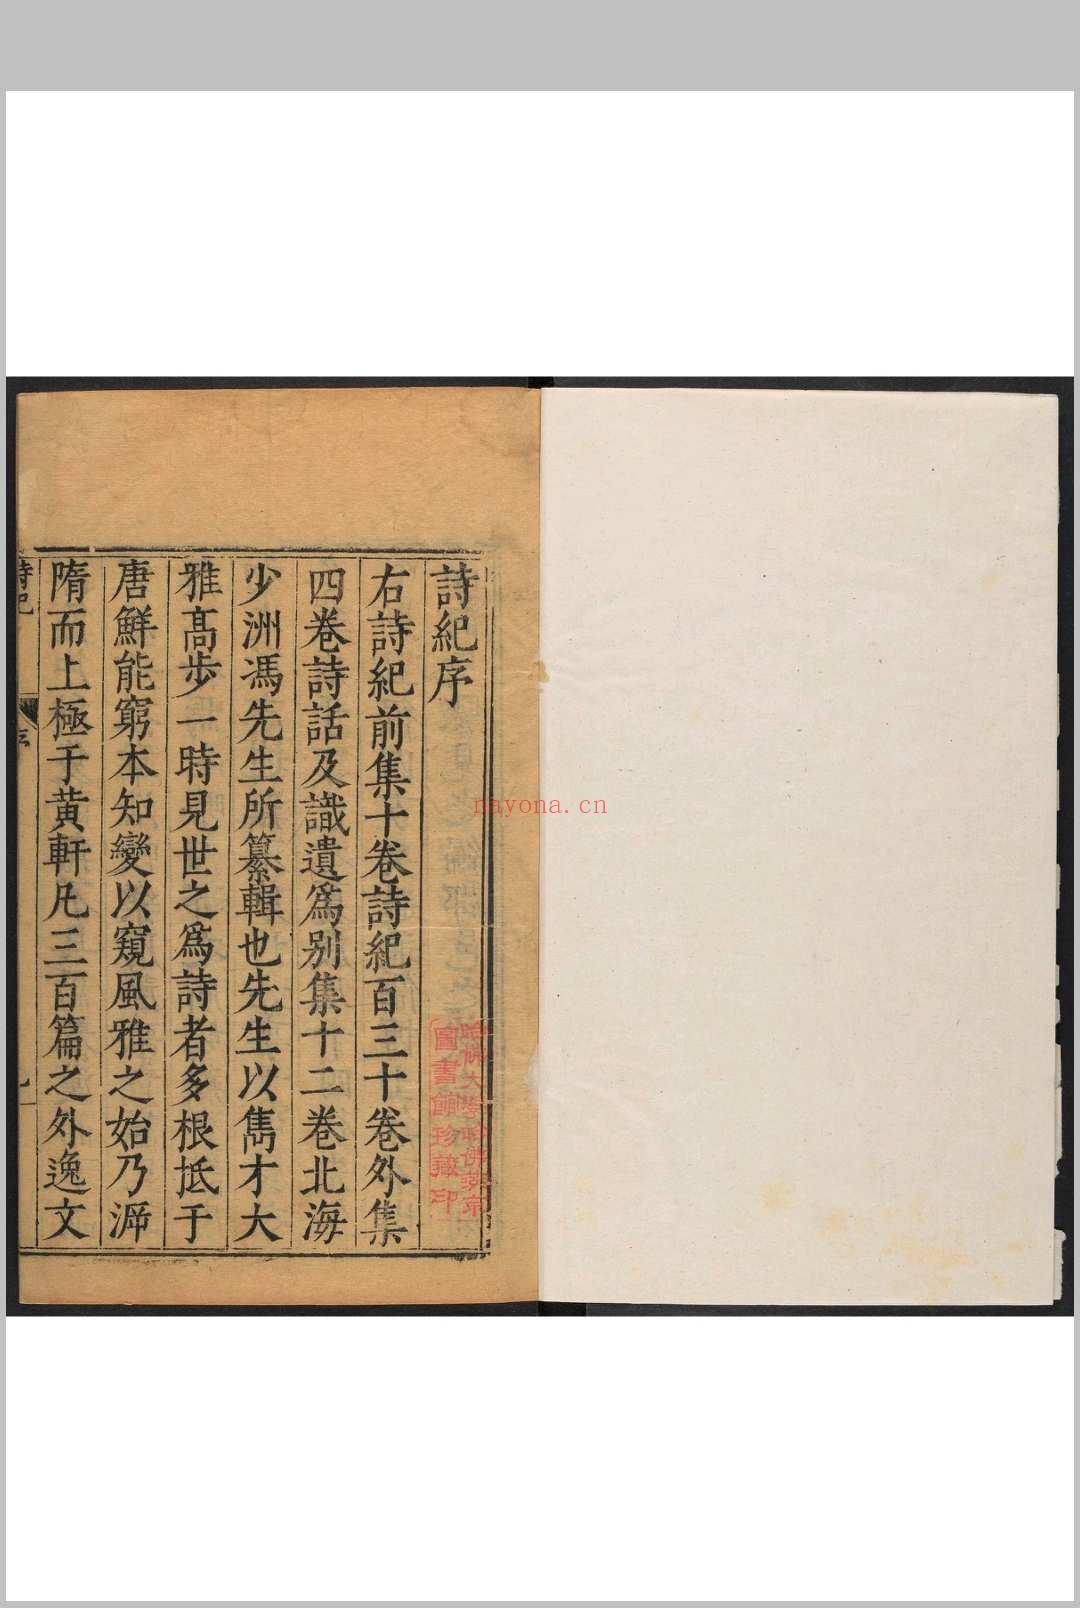 詩紀序
右詩紀前集十卷詩紀百三十卷外集
四卷詩話及識遺爲别集十二卷北海
少洲馮先生所纂輯也先生以雋才大
雅髙步一時見世之爲詩者多根抵于
唐鮮能窮本知變以窺風雅之始乃泝
隋而上極于黄軒凡三百篇之外逸文
詩紀
序
一
哈佛大學哈佛燕京
圖書館珍藏印
nayona.cn